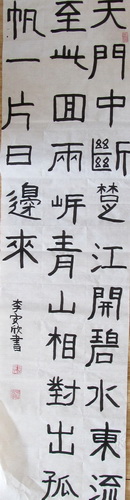 天門中斷楚江開碧水東流
至此回兩岸青山相對出孤
帆一片日邊來
李寅欣書